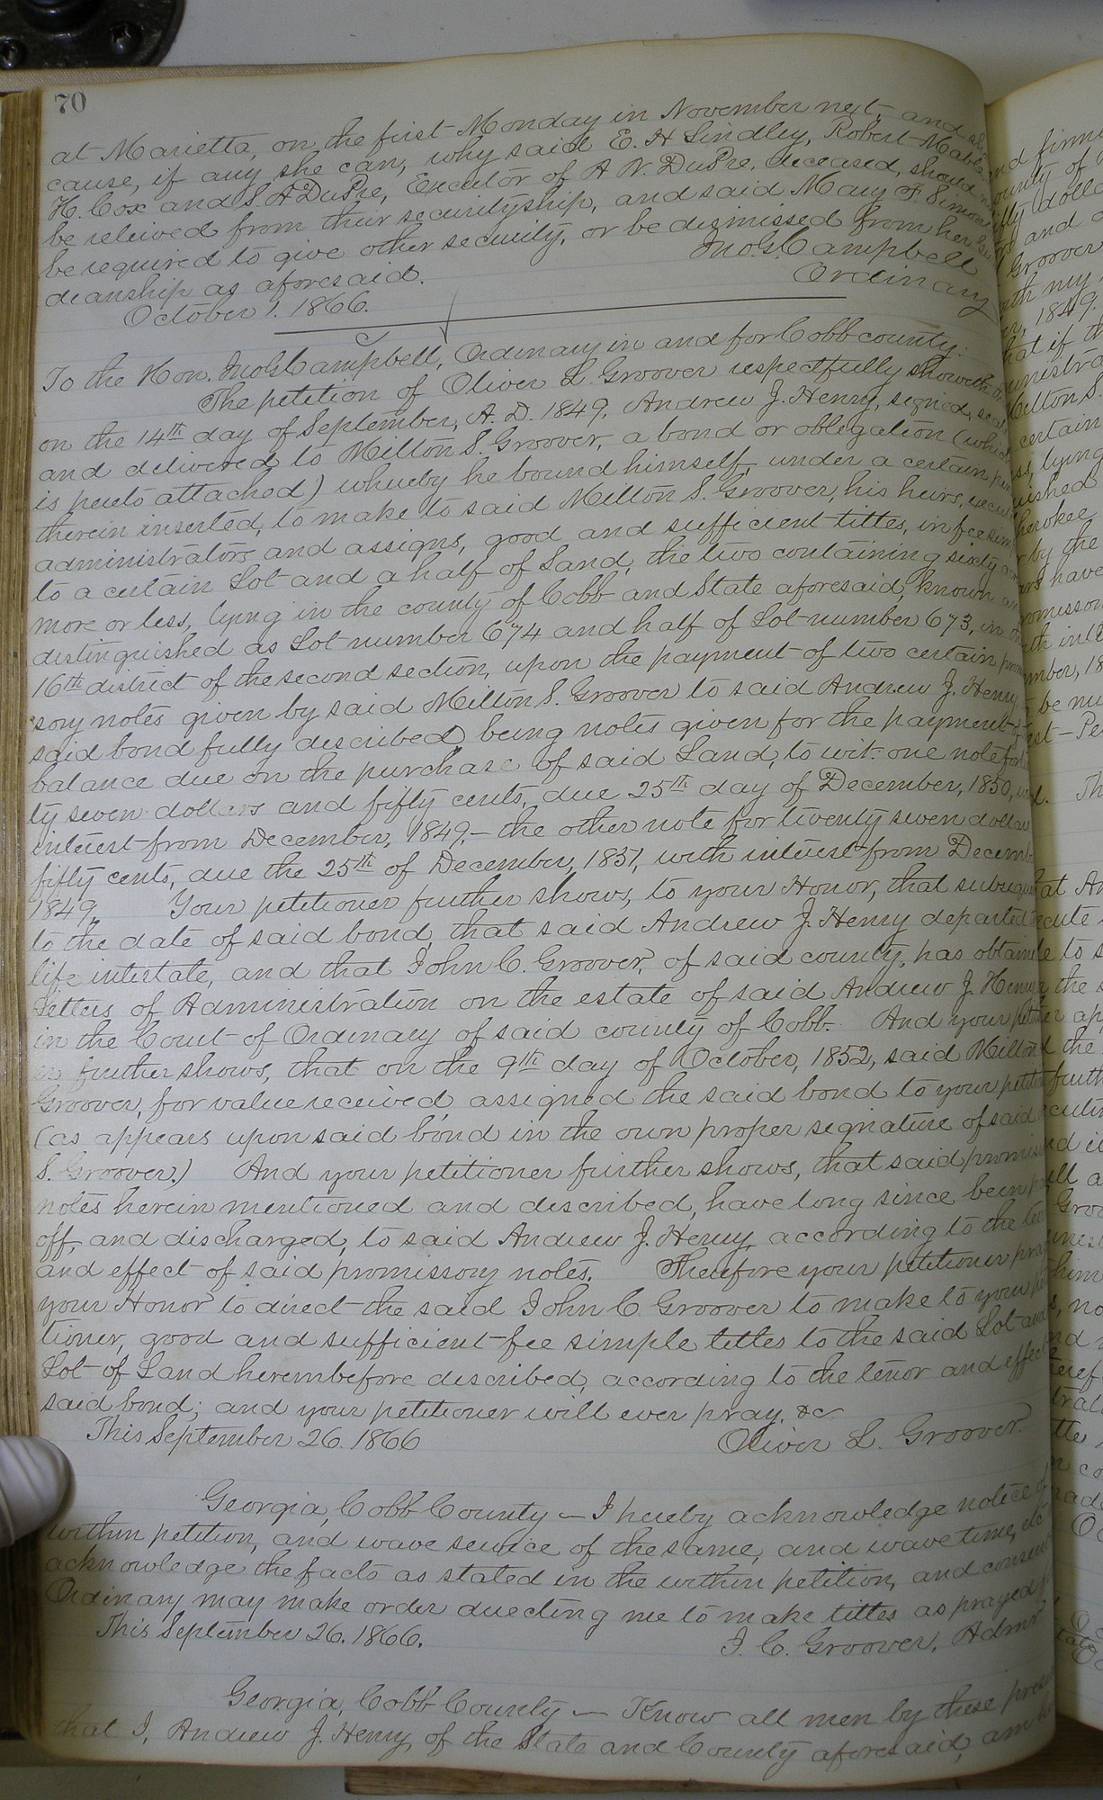 70
at Marietta, on the first Monday in November next, and
cause, if any she can, why said E. H Lindley, Robert
H. Cox and S A DuPre, Executor of A N. DuPre, deceased, should
be releived from their securityship, and said Mary F.
be required to give other security, or be dismissed from her
dianship as aforesaid. Jno. G. Campbell
October 1. 1866. Ordinary
To the Hon. Jno G Campbell, Ordinary in and for Cobb county:
The petition of Oliver L. Groover respectfully showeth
on the 14th day of September, A. D. 1849, Andrew J. Henry, signed,
and delivered to Milton S. Groover, a bond or obligation (which
is hereto attached) whereby he bound himself, under a certain
therein inserted, to make to said Milton S. Groover, his heirs,
administrators and assigns, good and sufficient titles, in fee
to a certain Lot and a half of Land, the two containing sixty
more or less, lying in the county of Cobb and State aforesaid, known
distinguished as Lot number 674 and half of Lot number 673, in
16th district of the second section, upon the payment of two certain
sory notes given by said Milton S. Groover to said Andrew J. Henry
said bond fully described, being notes given for the payment
balance due on the purchase of said Land, to wit: one note for
ty seven dollars and fifty cents, due 25th day of December, 1850,
interest from December, 1849,— the other note for twenty seven dollars
fifty cents, due the 25th of December, 1851, with interest from
1849. Your petitioner further shows, to your Honor, that
to the date of said bond, that said Andrew J. Henry departed
life intestate, and that John C. Groover, of said county, has
Letters of Administration on the estate of said Andrew J. Henry
in the Court of Ordinary of said county of Cobb. And your
er further shows, that on the 9th day of October, 1852, said Milton
Groover, for value received, assigned the said bond to your
(as appears upon said bond in the own proper signature of said
S. Groover.) And your petitioner further shows, that said
notes herein mentioned and described, have long since been
off, and discharged, to said Andrew J. Henry, according to the
and effect of said promissory notes. Therefore your petitioner
your Honor to direct the said John C. Groover to make to your
tioner, good and sufficient fee simple titles to the said Lot
Lot of Land hereinbefore described, according to the tenor and effect
said bond; and your petitioner will ever pray, &c
This September 26. 1866 Oliver L. Groover
Georgia, Cobb County — I hereby acknowledge notice
within petition, and wave service of the same, and wave time,
acknowledge the facts as stated in the within petition, and
Ordinary may make order directing me to make titles as prayed
This September 26. 1866. J. C. Groover, Admr
Georgia, Cobb County — Know all men by these
that I, Andrew J. Henry, of the State and County aforesaid, am